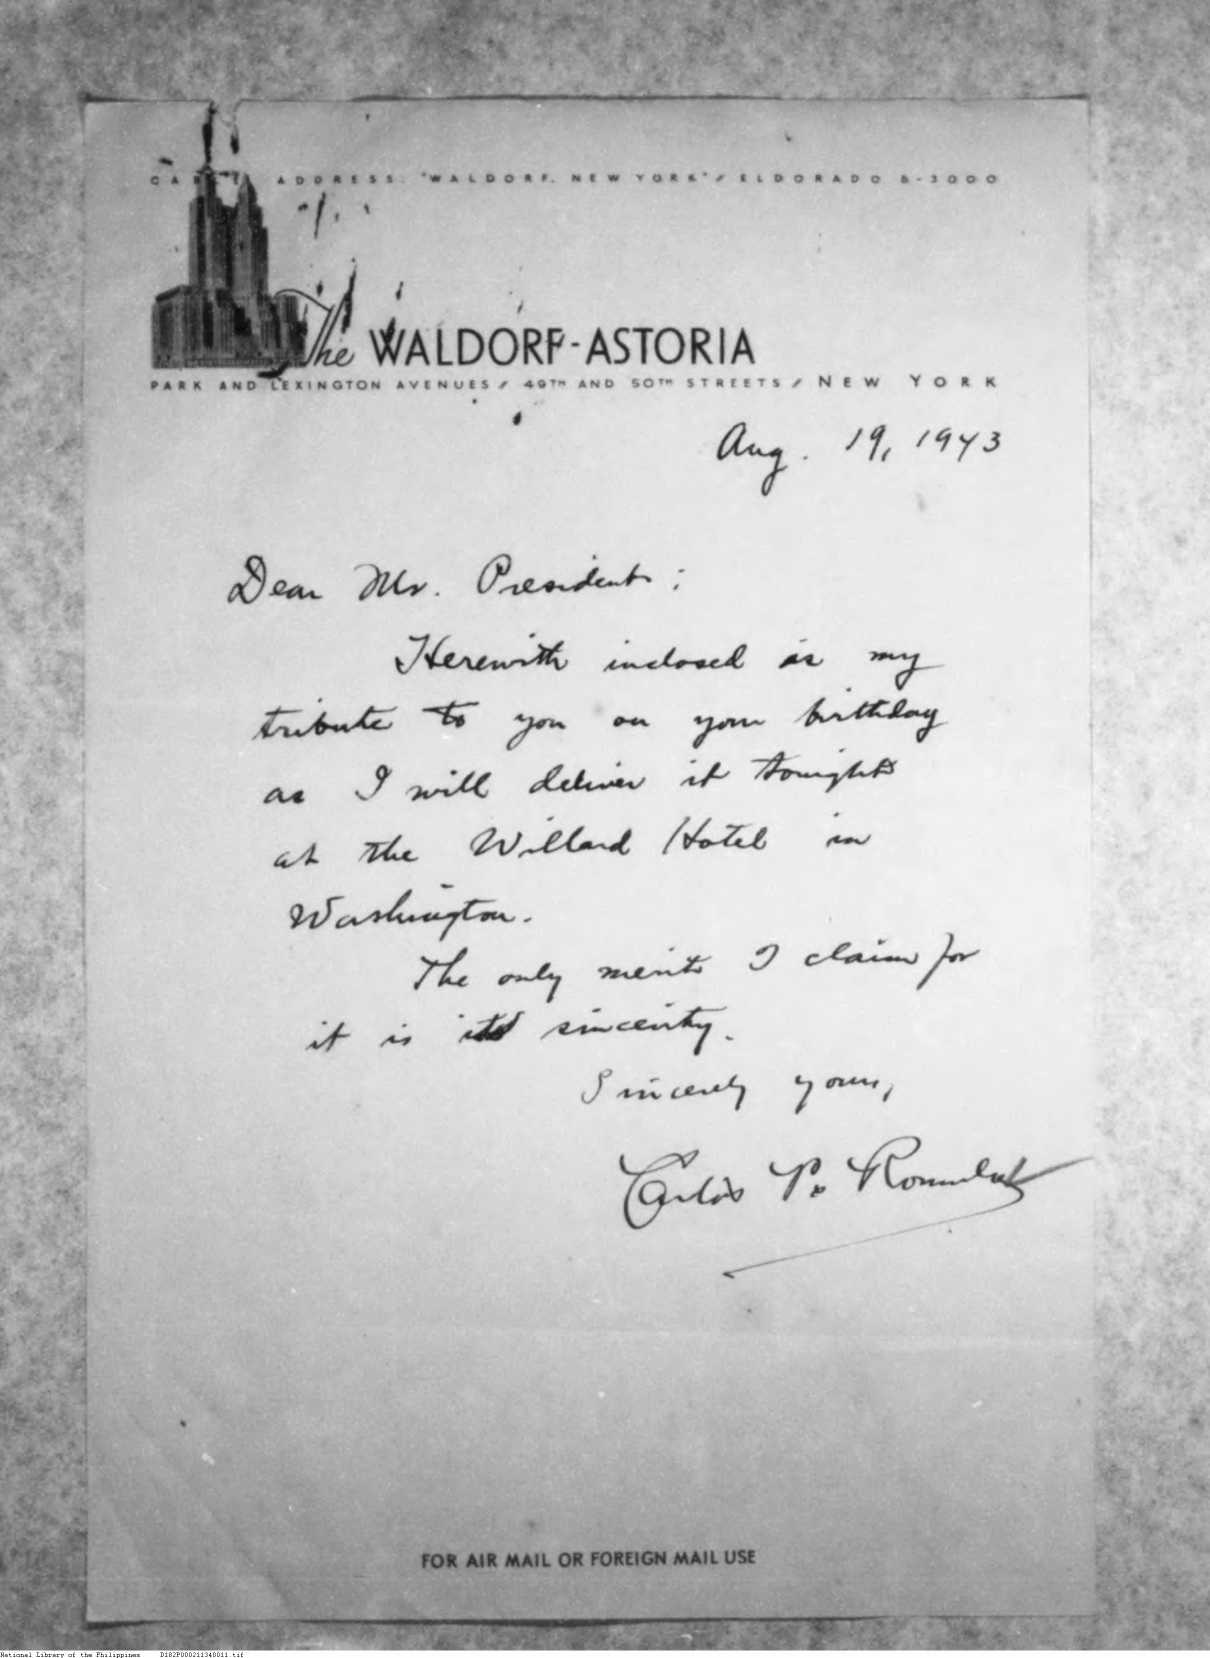 CABLE ADDRESS: "WALDORF, NEW YORK" / ELDORADO 5-3000
The WALDORF-ASTORIA
PARK AND LEXINGTON AVENUES / 49TH AND 50TH STREETS / NEW YORK
Aug. 19, 1943
Dear Mr. President:
Herewith inclosed is my
tribute to you on your birthday
as I will deliver it tonight
at the Willard Hotel in
Washington.
The only merit I claim for
it is its sincerity.
Sincerely yours,
Carlos P. Romulo
FOR AIR MAIL OR FOREIGN MAIL USE
National Library of the Philippines D182P000211340011.tif